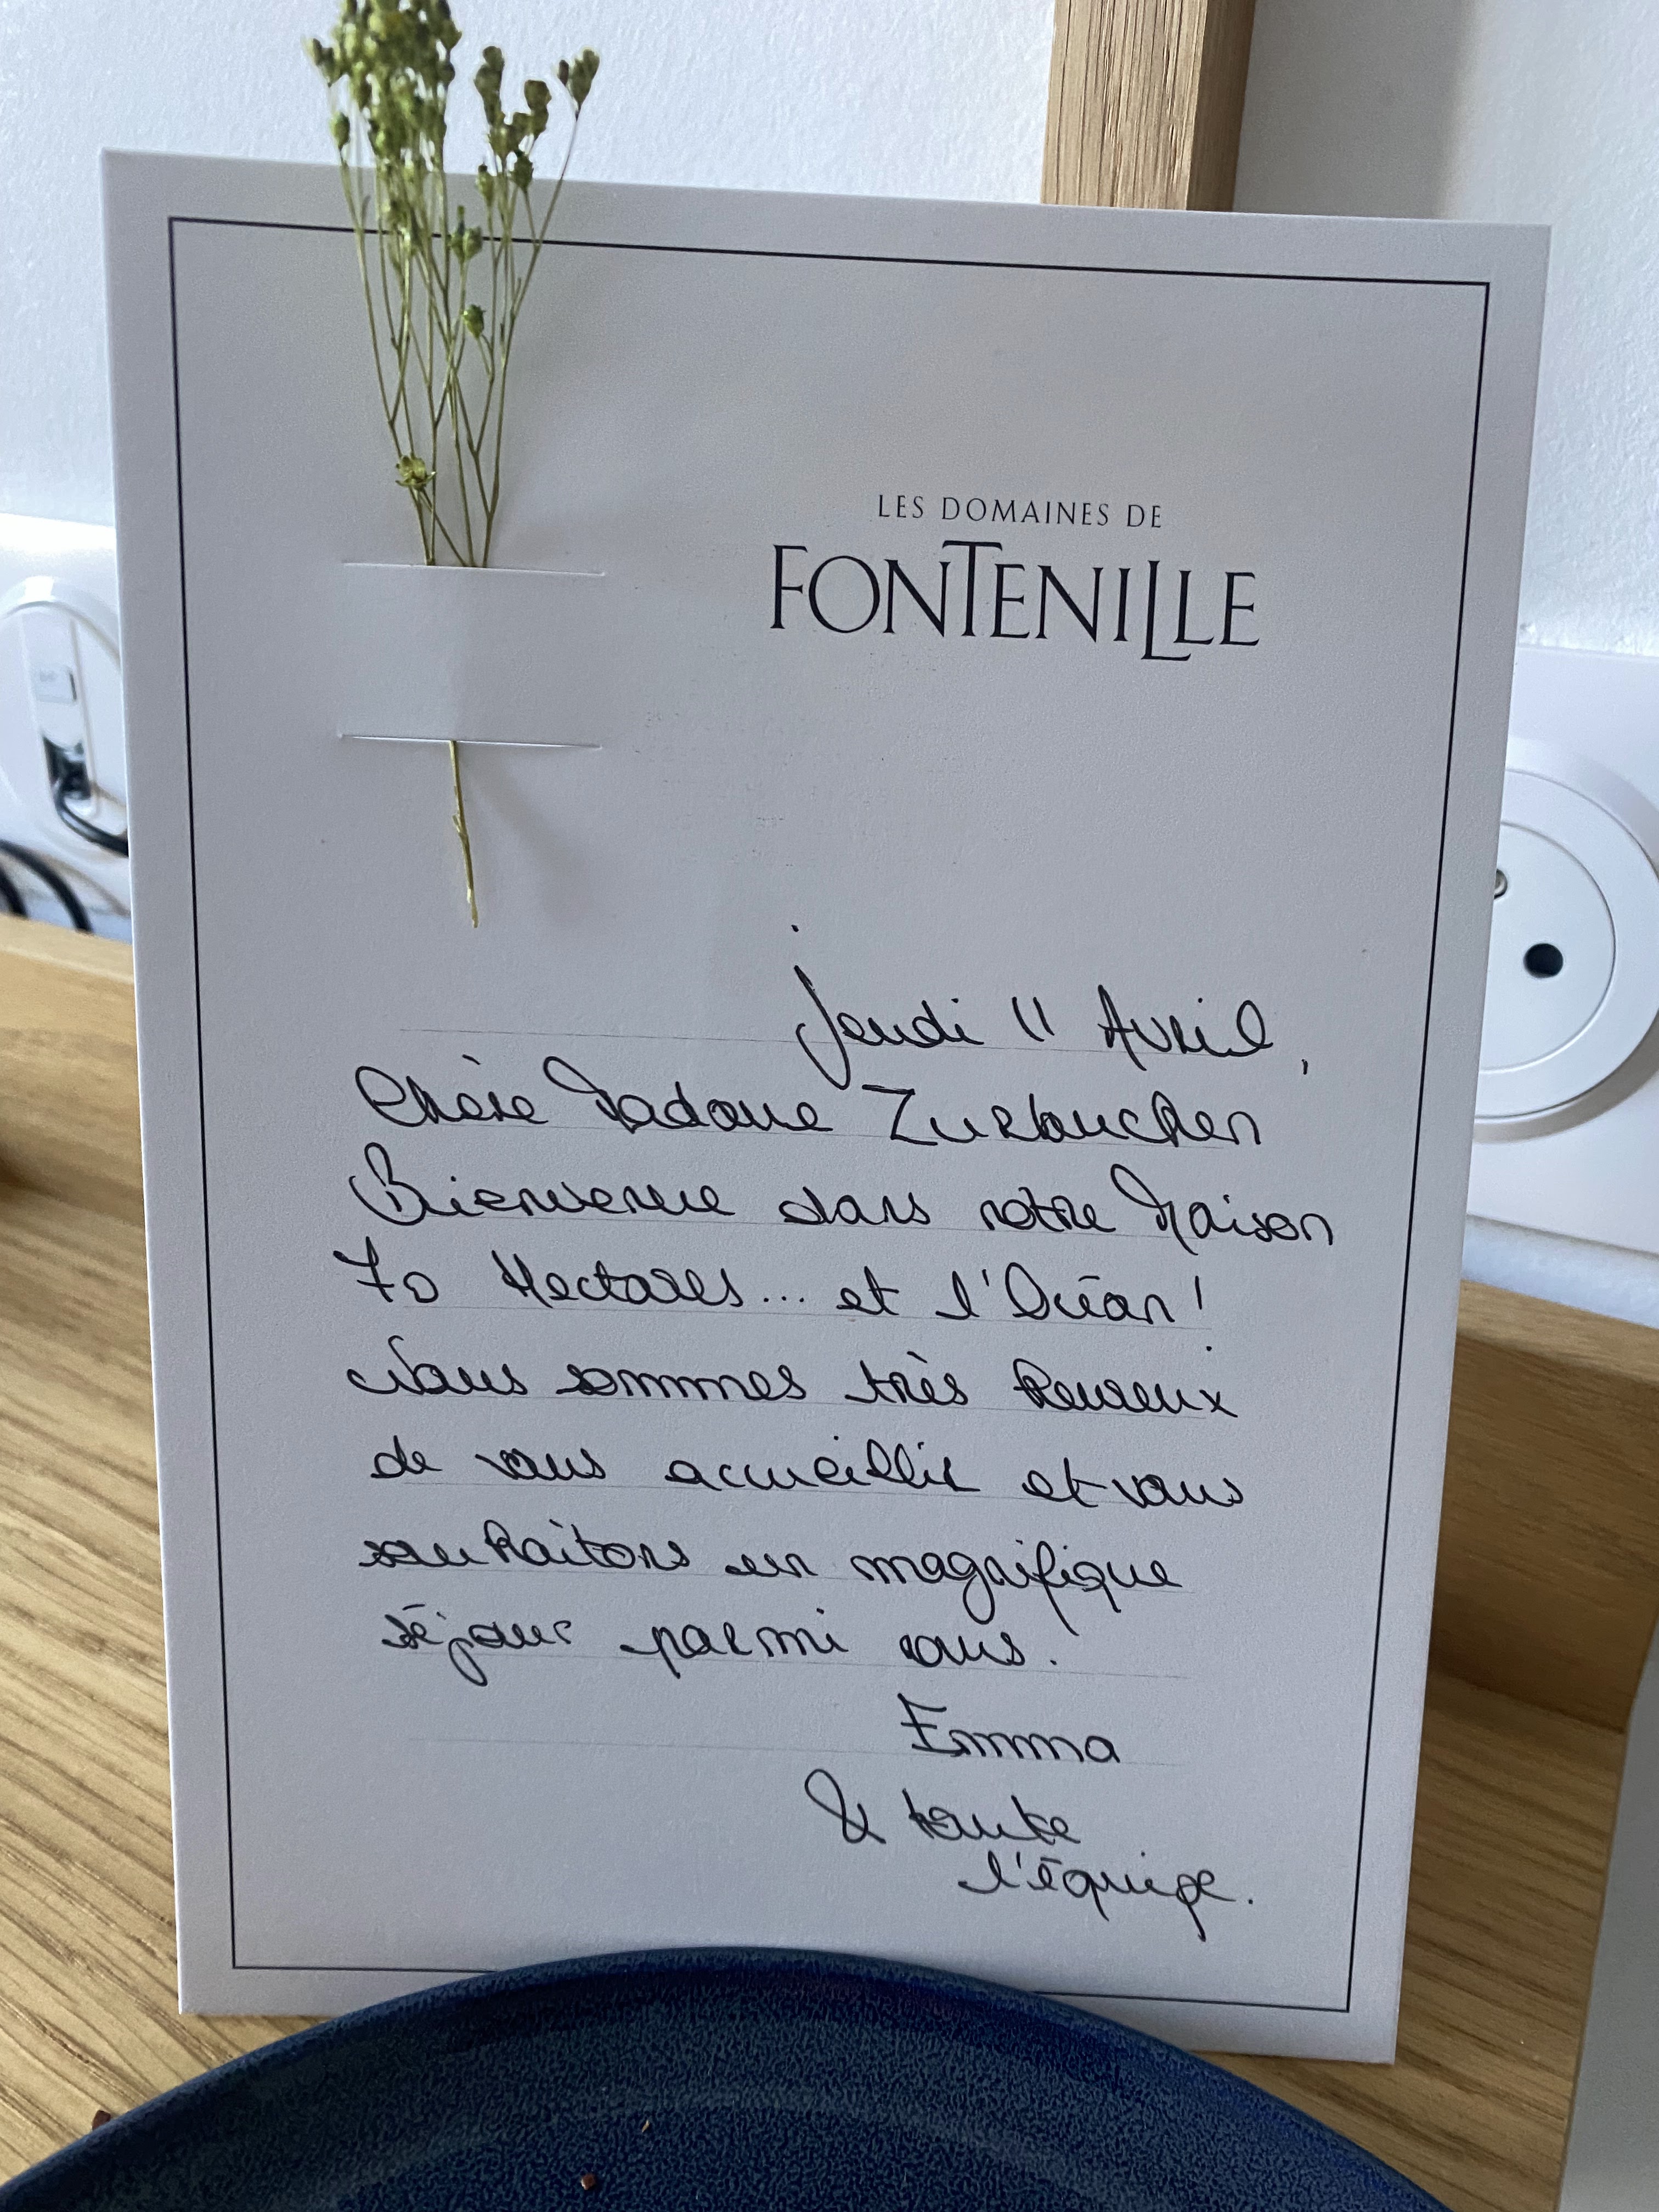 LES DOMAINES DE
FONTENILLE
Jeudi 11 Avril,
Chère Madame Zurbuchen
Bienvenue dans notre Maison
70 Hectares... et l'Océan!
Nous sommes très heureux
de vous accueillir et vous
souhaitons un magnifique
séjour parmi nous.
Emma
& toute
l'équipe.